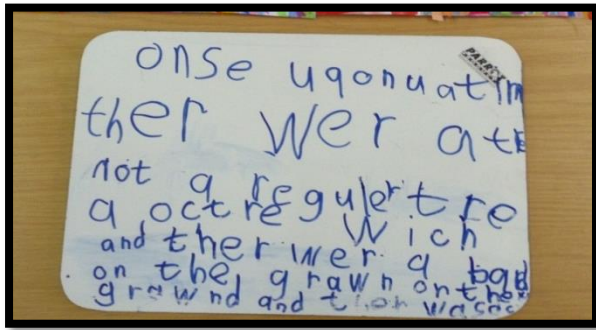 PARROT
onse uqonuatim
ther wer atre
not a regulertre
a octre Wich
and ther wer a bad
on the grawn on the
grawnd and ther was